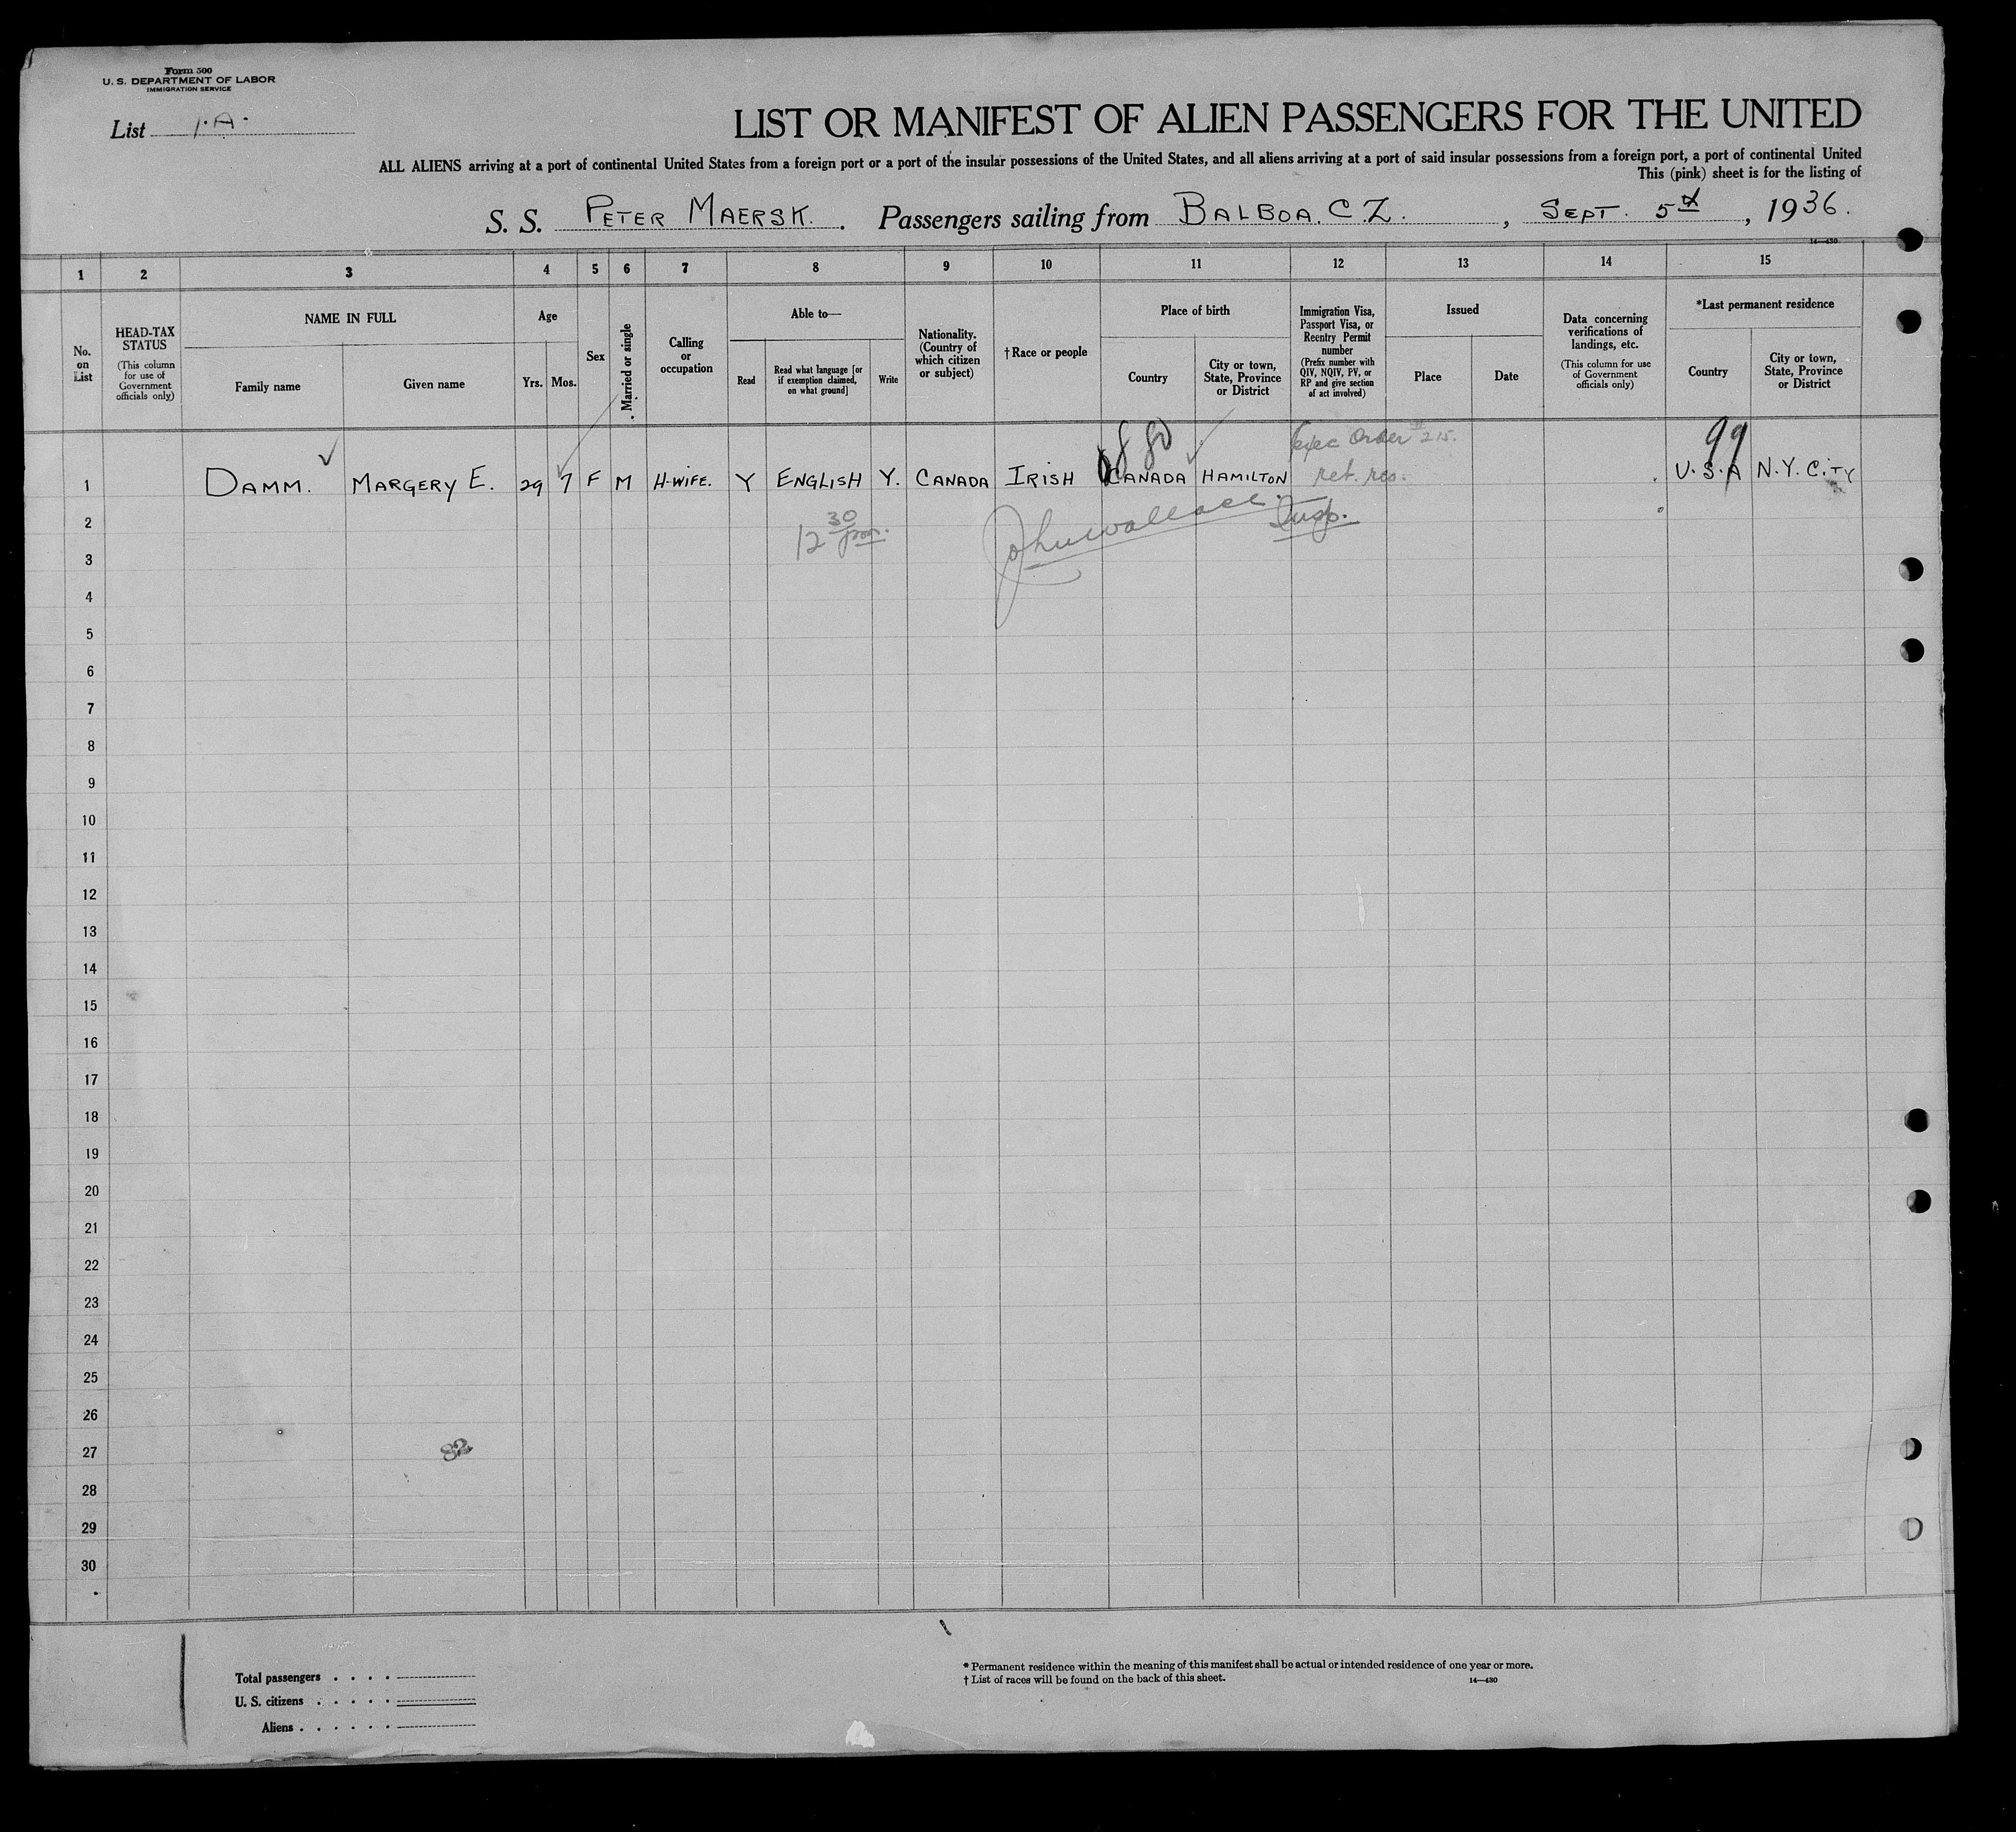 Form 500
U. S. DEPARTMENT OF LABOR
IMMIGRATION SERVICE
List 1.A.
LIST OR MANIFEST OF ALIEN PASSENGERS FOR THE UNITED
ALL ALIENS arriving at a port of continental United States from a foreign port or a port of the insular possessions of the United States, and all aliens arriving at a port of said insular possessions from a foreign port, a port of continental United
This (pink) sheet is for the listing of
S. S. PETER MAERSK. Passengers sailing from BALBOA. C Z. , SEPT. 5th , 1936.
14—430
1 2 3 4 5 6 7 8 9 10 11 12 13 14 15
No. on List
HEAD-TAX STATUS
(This column for use of Government officials only)
NAME IN FULL
Family name
Given name
Age
Yrs.
Mos.
Sex
Married or single
Calling or occupation
Able to—
Read
Read what language [or if exemption claimed, on what ground]
Write
Nationality. (Country of which citizen or subject)
†Race or people
Place of birth
Country
City or town, State, Province or District
Immigration Visa, Passport Visa, or Reentry Permit number
(Prefix number with QIV, NQIV, PV, or RP and give section of act involved)
Issued
Place
Date
Data concerning verifications of landings, etc.
(This column for use of Government officials only)
*Last permanent residence
Country
City or town, State, Province or District
80
Exec Order 215.
99
1 DAMM. MARGERY E. 29 7 F M H-WIFE. Y ENGLISH Y. CANADA IRISH CANADA HAMILTON ret. res. U.S.A N.Y. CITY
2
12 30 pm. John Wallace Insp.
3
4
5
6
7
8
9
10
11
12
13
14
15
16
17
18
19
20
21
22
23
24
25
26
27
82
28
29
30
Total passengers . . . .
U. S. citizens . . . . .
Aliens . . . . . .
* Permanent residence within the meaning of this manifest shall be actual or intended residence of one year or more.
† List of races will be found on the back of this sheet.
14—430